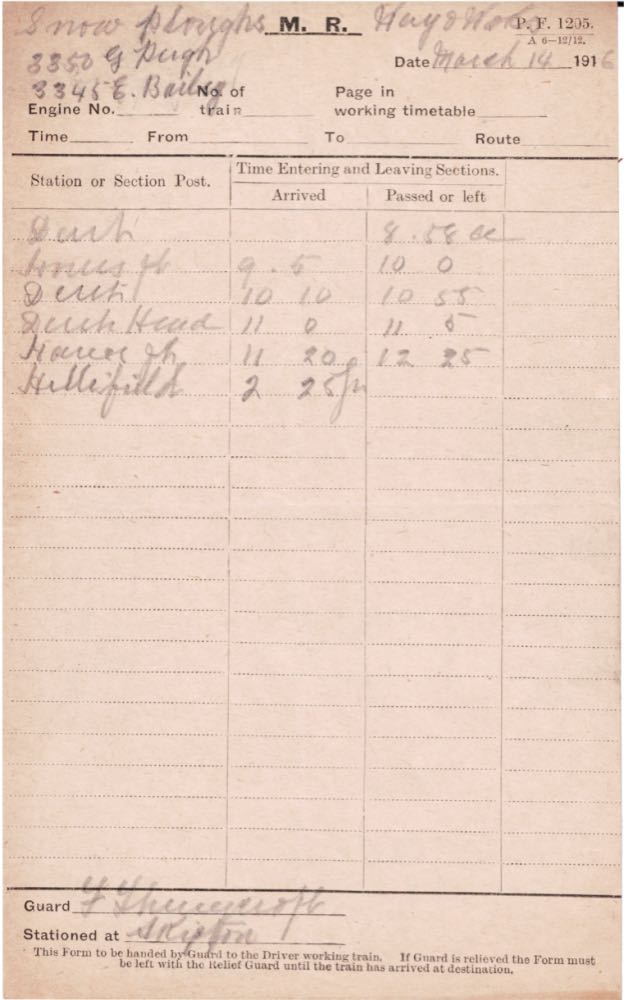 Snow Ploughs M. R. Way & Works P. F. 1205.
A 6—12/12.
3350 G Pugh
Date March 14 1916
3345 E. Bailey
Engine No. No. of train Page in working timetable
Time From To Route
Station or Section Post. Time Entering and Leaving Sections.
Arrived Passed or left
Dent 8.58 a
Hawes Jt 9.5 10 0
Dent 10 10 10 55
Dent Head 11 0 11 5
Hawes Jt 11 20 12 25
Hellifield 2 25 pm
Guard F
Stationed at Skipton
This Form to be handed by Guard to the Driver working train. If Guard is relieved the Form must
be left with the Relief Guard until the train has arrived at destination.